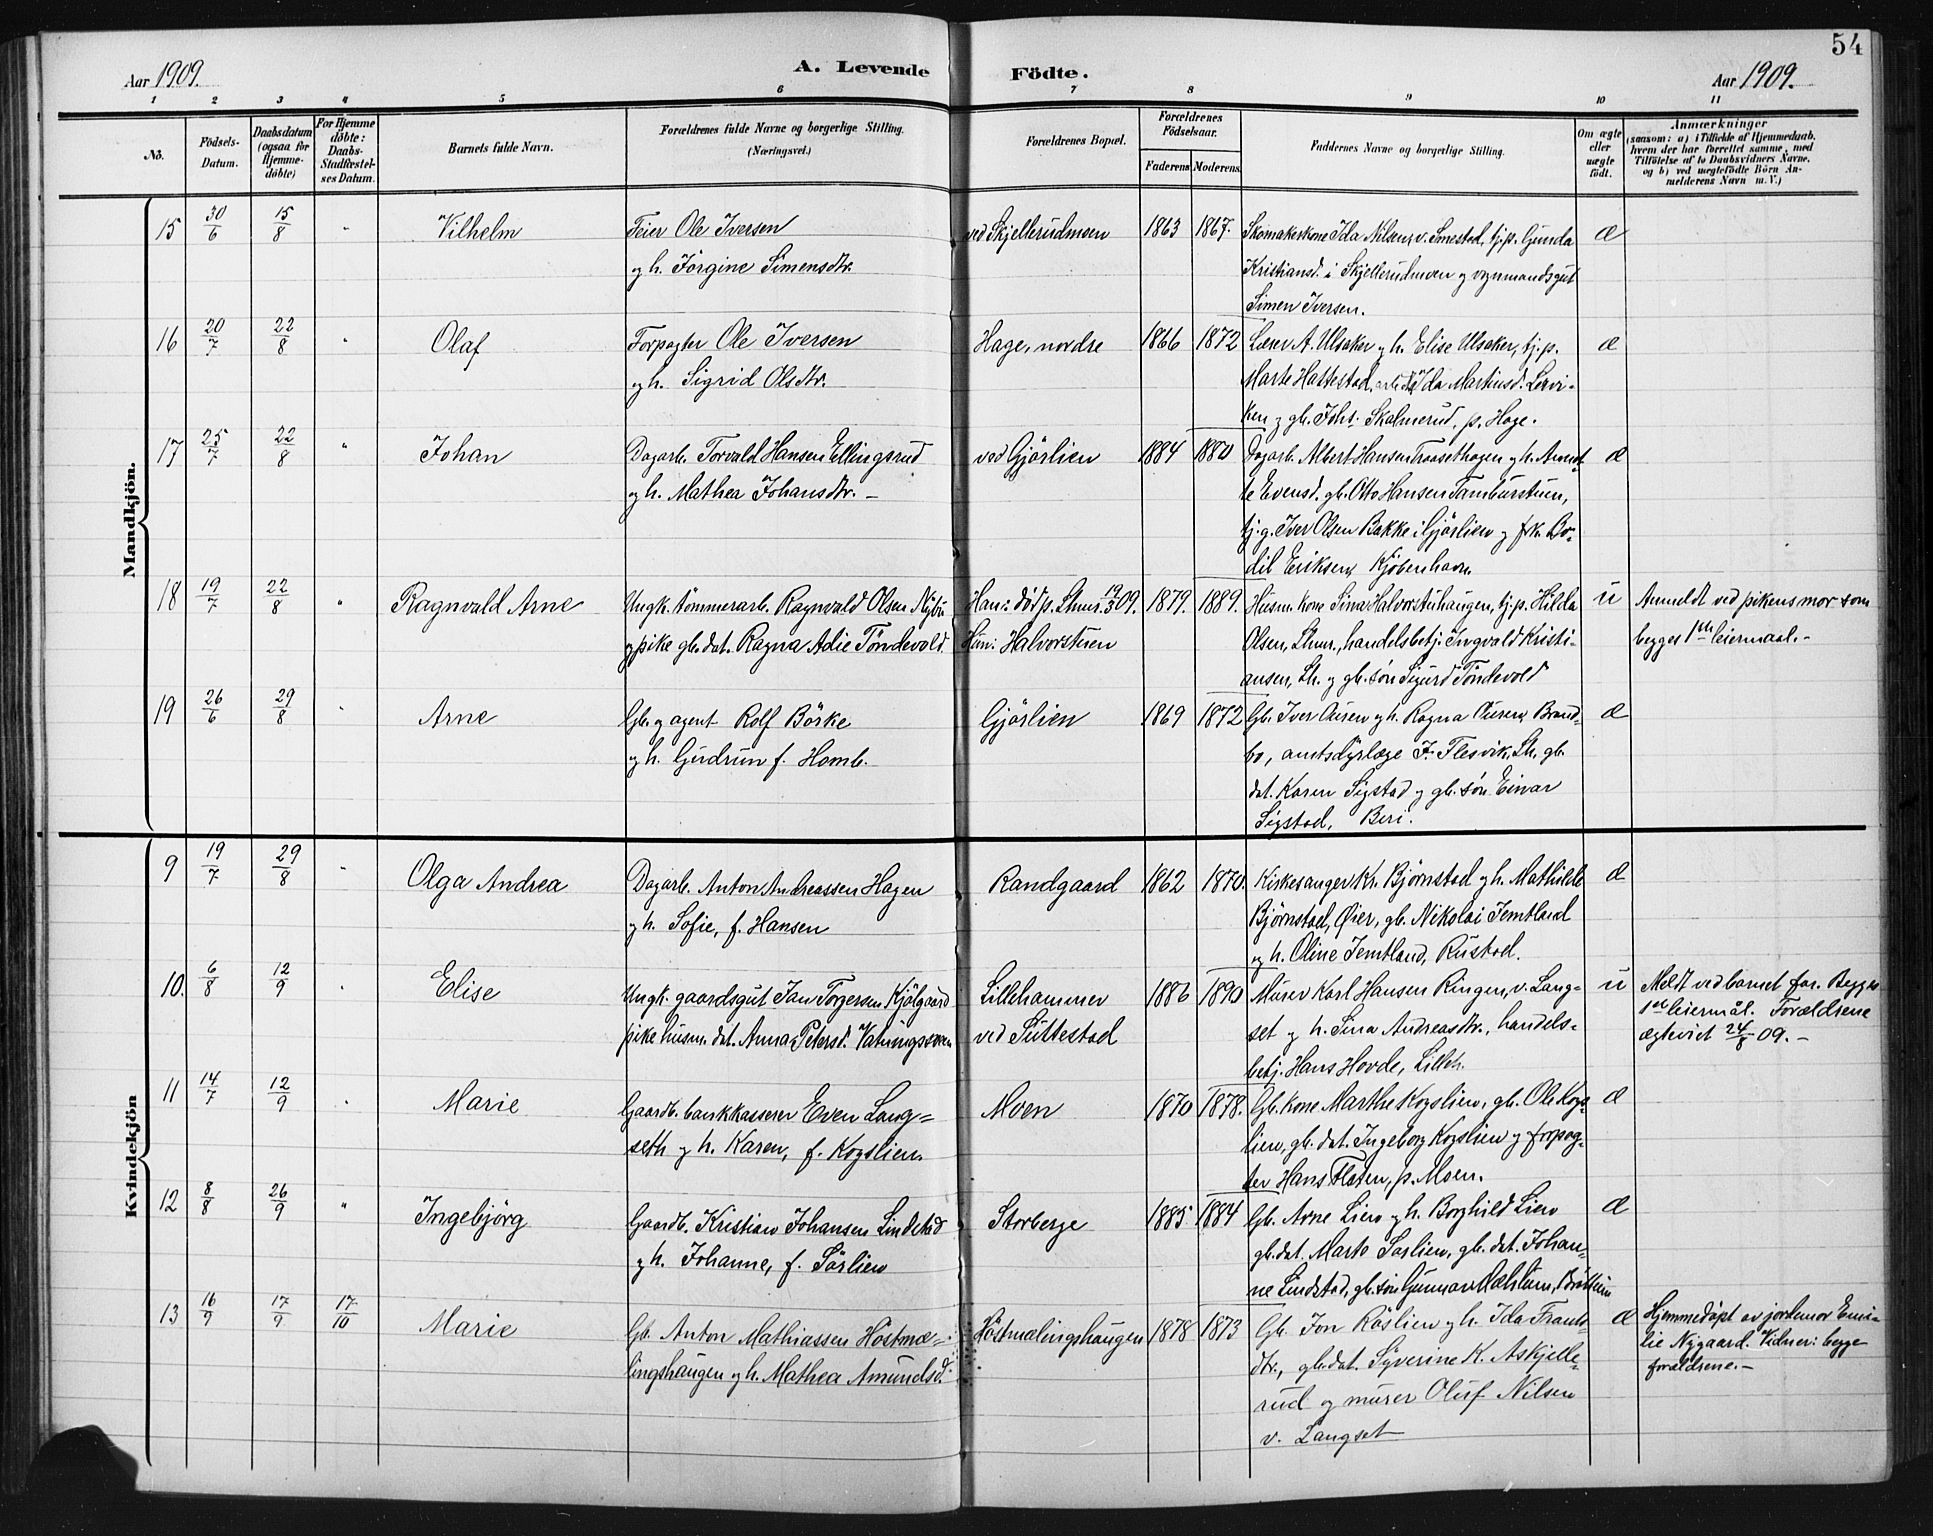 54
Aar 1909.
A. Levende Födte.
Aar 1909.
1 2 3 4 5 6 7 8 9 10 11
No.
Födsels-Datum.
Daabsdatum (ogsaa for Hjemme-döbte)
For Hjemme döbte: Daabs-Stadfæstel-ses Datum.
Barnets fulde Navn.
Forældrenes fulde Navne og borgerlige Stilling.
(Næringsvei.)
Forældrenes Bopæl.
Forældrenes Födselsaar.
Faderens
Moderens.
Faddernes Navne og borgerlige Stilling.
Om ægte eller uægte födt.
Anmærkninger
(saasom: a) i Tilfælde af Hjemmedaab,
hvem der har forrettet samme, med
Tilföielse af to Daabsvidners Navne.
og b) ved uægtefödte Börn An-
melderens Navn m. V.)
Mandkjön.
15 30/6 15/8 " Vilhelm
Feier Ole Iversen
og h. Jörgine Simensdtr.
ved Skjellerudmoen 1863 1867.
Skomakerkone Ida Nilsen, v. Smestad, tj.p. Gunda
Kristiansd. i Skjellerudmoen og vognmandsgut
Simen Iversen.
æ
16 20/7 22/8 " Olaf
Forpagter Ole Iversen
og h. Sigrid Olsdtr.
Hage, nordre 1866 1872
Lærer A. Ulsaker og h. Elise Ulsaker, tj.p.
Marte Hattestad, Ida Martinsd. Lervi-
ken og gb. Johs. Skalmerud, p. Hage.
æ
17 25/7 22/8 " Johan
Dagarb. Torvald Hansen Ellingsrud
og h. Mathea Johansdtr. -
ved Gjörlien 1884 1880
Dagarb. Albert Hansen Traasethagen og h. Arnet-
te Evensd. gb. Otto Hansen Tamburstuen,
tj.g. Iver Olsen Bakke i Gjörlien og frk. Bo-
dil Eriksen, Kjöbenhavn.
æ
18 19/7 22/8 " Ragnvald Arne
Ungk. tömmerarb. Ragnvald Olsen Nybu
og pike gb.dat. Ragna Adie Töndevold.
Han: död p. Lhmr. 19/3 09.
Hun: Halvorstuen
1879. 1889.
Husm.kone Sina Halvorstuhaugen, tj.p. Hilda
Olsen, Lhmr., handelsbetj. Ingvald Kristi-
ansen, Lh. og gb.sön Sigurd Töndevold
u
Anmeldt ved pikens mor som
begges 1ste leiermaal.-
19 26/6 29/8 " Arne
Gb. og agent Rolf Börke
og h. Gudrun f. Homb.
Gjörlien 1869 1872
Gb. Iver Aursen og h. Ragna Aursen, Brand-
bo, amtsdyrlæge J. Flesvik, Lh. gb.
dat. Karen Sigstad og gb.sön Einar
Sigstad, Biri.
æ
Kvindekjön
9 19/7 29/8 " Olga Andrea
Dagarb. Anton Andreassen Hagen
og h. Sofie, f. Hansen
Randgaard 1862 1870.
Kirkesanger Kr. Björnstad og h. Mathilde
Björnstad, Öier, gb. Nikolai Jemtland
og h. Oline Jemtland, Rustad.
æ
10. 6/8 12/9 " Elise
Ungk. gaardsgut Jan Torgersen Kjölgaard
pike husm. dat. Anna Petersd.
Lillehammer
ved Suttestad
1886 1890
Murer Karl Hansen Ringen, v. Lang-
set og h. Sina Andreasdtr., handels-
betj. Hans Hovde, Lilleh.
u
Meldt ved barnet far. Begges
1ste leiermål. Forældrene
ægteviet 24/8 09. -
11 14/7 12/9 " Marie
Gaardb. bankkasserer Even Lang-
seth og h. Karen, f. Kogslien.
Moen 1870 1878.
Gb.kone Marthe Kogslien, gb. Ole Kogs-
lien, gb. dat. Ingeborg Kogslien og forpag-
ter Hans Flaten, p. Moen.
æ
12 8/8 26/9 " Ingebjörg
Gaardb. Kristian Johansen Lindstad
og h. Johanne, f. Sörlien
Storberge 1885 1884
Gb. Arne Lien og h. Borghild Lien
gb.dat. Marte Sørlien, gb. dat. Johan-
ne Lindstad, gb.sön Gunnar Mæhlum, Bröttum
æ
13 16/9 17/9 17/10 Marie
Gb. Anton Mathiassen Höstmæ-
lingshaugen og h. Mathea Amundsd.
Höstmælingshaugen 1878 1873
Gb. Jon Röslien og h. Ida Frants-
dtr., gb.dat. Syverine K. Askjelle-
rud og murer Oluf Nilsen
v. Langset
æ
Hjemmedöpt av jordemor Emi-
lie Nygaard. Vidner: begge
forældrene.-